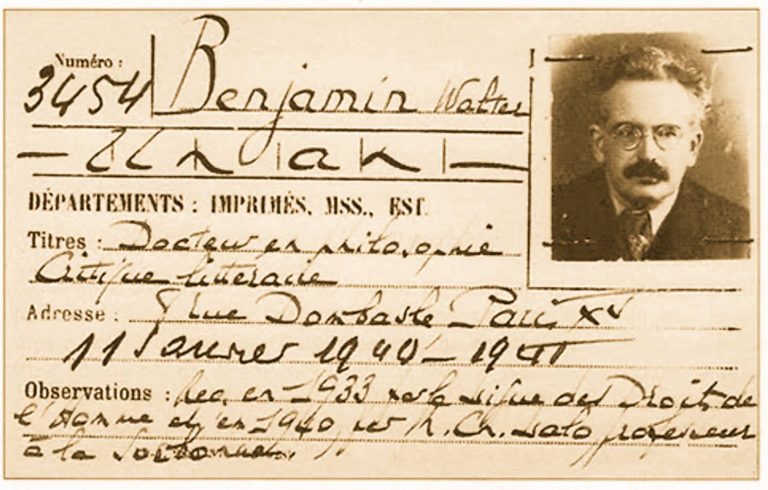 Numéro :
3454 Benjamin Walter
DÉPARTEMENTS : IMPRIMÉS, MSS., EST.
Titres : Docteur en philosophie
Critique littéraire
Adresse : rue Dombasle Paris XV
11 Janvier 1940 - 1941
Observations : Rec. en 1933 par la Ligue des Droits de
l'Homme et en 1940 par professeur
à la Sorbonne.